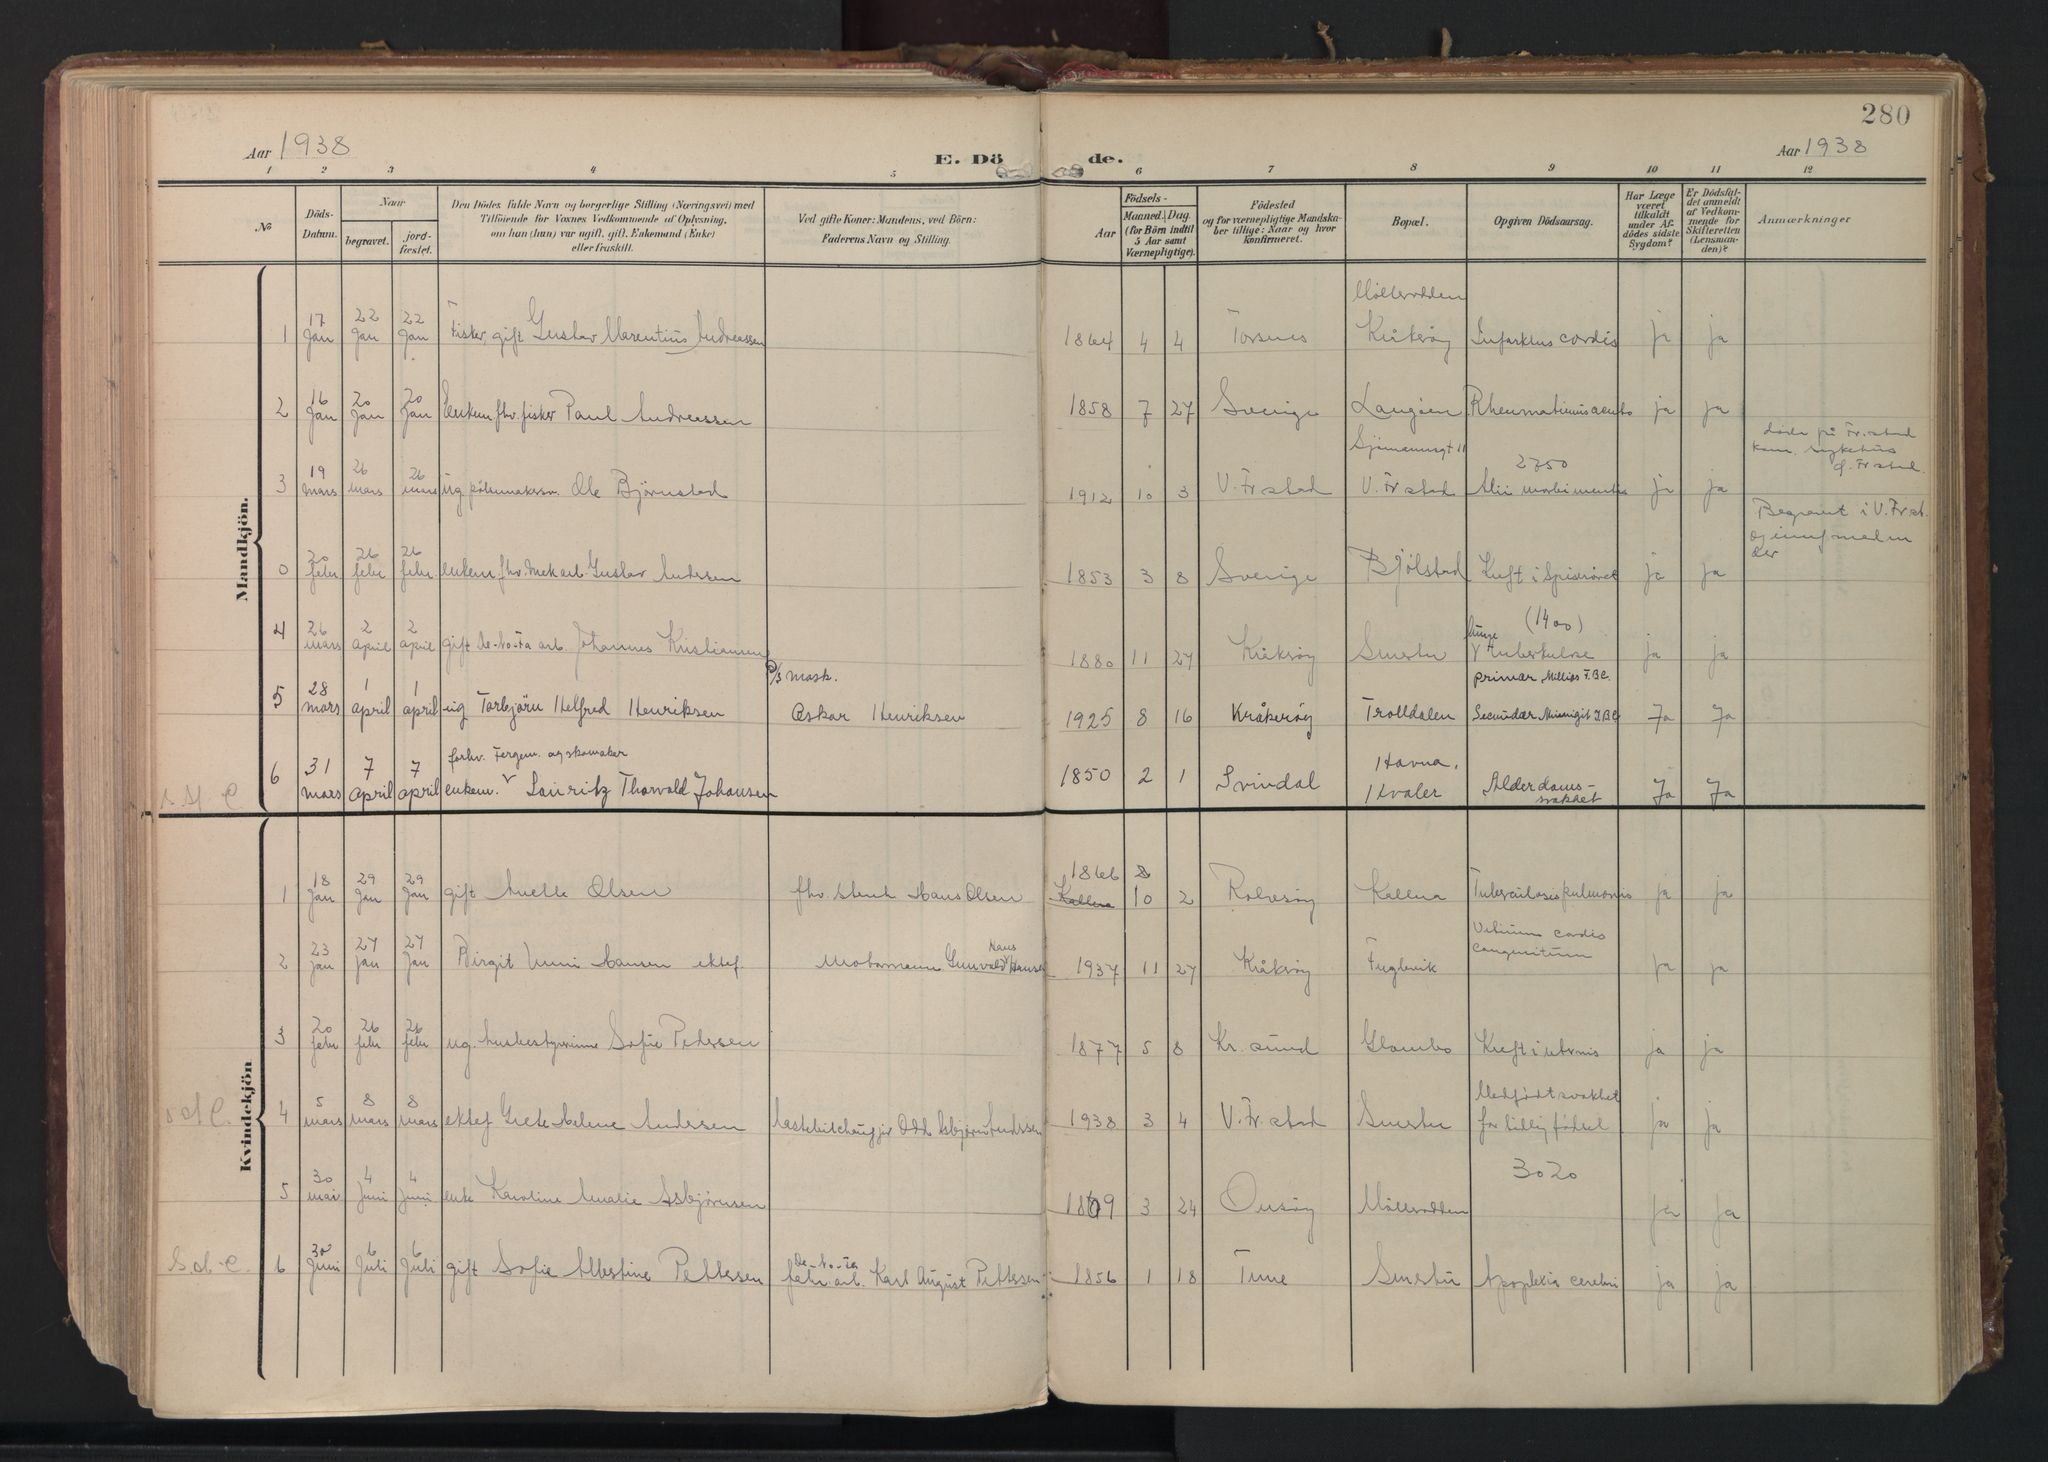 280
Aar 1938
E. Dö de.
Aar 1938
1 2 3 4 5 6 7 8 9 10 11 12
No
Döds-Datum.
Naar
begravet.
jord-fæstet.
Den Dödes fulde Navn og borgerlige Stilling (Næringsvei) med
Tilföiende for Voxnes Vedkommende af Oplysning,
om han (hun) var ugift, gift, Enkemand (Enke)
eller fraskilt.
Ved gifte Koner: Mandens, ved Börn:
Faderens Navn og Stilling.
Födsels-
Aar
Maaned. Dag.
(for Börn indtil
5 Aar samt
Værnepligtige).
Födested
og for værnepligtige Mandska-
ber tillige: Naar og hvor
konfirmeret.
Bopæl.
Opgiven Dödsaarsag.
Har Læge
været
tilkaldt
under Af-
dödes sidste
Sygdom?
Er Dödsfal-
det anmeldt
af Vedkom-
mende for
Skifteretten
(Lensman-
den)?
Anmærkninger
Mandkjön.
Möllerodden
1 17 Jan 22 Jan 22 Jan Fisker, gift Gustav Marentius Andreassen 1864 4 4 Torsnes Kråkröy Infarktus cordis ja ja
2 16 Jan 20 Jan 20 Jan Enkem. fhv. fisker Paul Andreassen 1858 7 27 Sverige Langöen Rheumatismus ja ja
2750
död på Fr.stad
kom. sykehus
3 19 mars 26 mars 26 mars ug pölsemakersv. Ole Björnstad 1912 10 3 V. Fr stad V. Fr stad Alii morbi mentis ja ja
Begravet i V. Fr.st.
der
0 20 febr 26 febr 26 febr. enkem. fhv. mek arb. Gustav Andersen 1853 3 8 Sverige Bjölstad Kreft i Spiserøret ja ja
(1400)
lunge
4 26 mars 2 april 2 april gift De-No-Fa arb. Johannes Kristiansen 1880 11 27 Kråkröy Smertu tuberkulose ja ja
mask. primær Milliær T.B.C.
5 28 mars 1 april 1 april ug Torbjörn Helfred Henriksen Oskar Henriksen 1925 8 16 Kråkeröy Trolldalen Secundær Miningit T.B.C. Ja Ja
forhv. Fergem. og skomaker
6 31 mars 7 april 7 april enkem. Lauritz Thorvald Johansen 1850 2 1 Svindal Havna, Hvaler Alderdoms-svakhet Ja Ja
Kvindekjön
1866 8
1 18 Jan 29 Jan 29 Jan gift Anette Olsen fhv. Stenh. Hans Olsen Kallera 10 2 Rolvsöy Kallera Tuberculosis pulmonis ja ja
Vitium cordis
congenitum
Hans
2 23 Jan 27 Jan 27 Jan Birgit Unni Hansen ektef. Motormann Gunvald Hansen 1937 11 27 Kråkröy Fuglevik ja ja
3 20 febr 26 febr 26 febr ug. husbestyrerinne Sofie Pedersen 1877 5 8 Kr. sund Glombo Kreft i uterus ja ja
Medfödt svakhet
4 5 mars 8 mars 8 mars ektef Grete Helene Andersen Odd Asbjörn Andersen 1938 3 4 V. Fr. stad Smertu for tidlig födsel ja ja
3020
5 30 mai 4 Juni 4 Juni enke Karoline Amalie Asbjörnsen 1869 3 24 Onsöy Möllerodden ja ja
De-No-Fa
6 30 Juni 6 Juli 6 Juli gift Sofie Albertine Pettersen fabr arb. Karl August Pettersen 1856 1 18 Tune Smertu Apoplexia cerebri ja ja